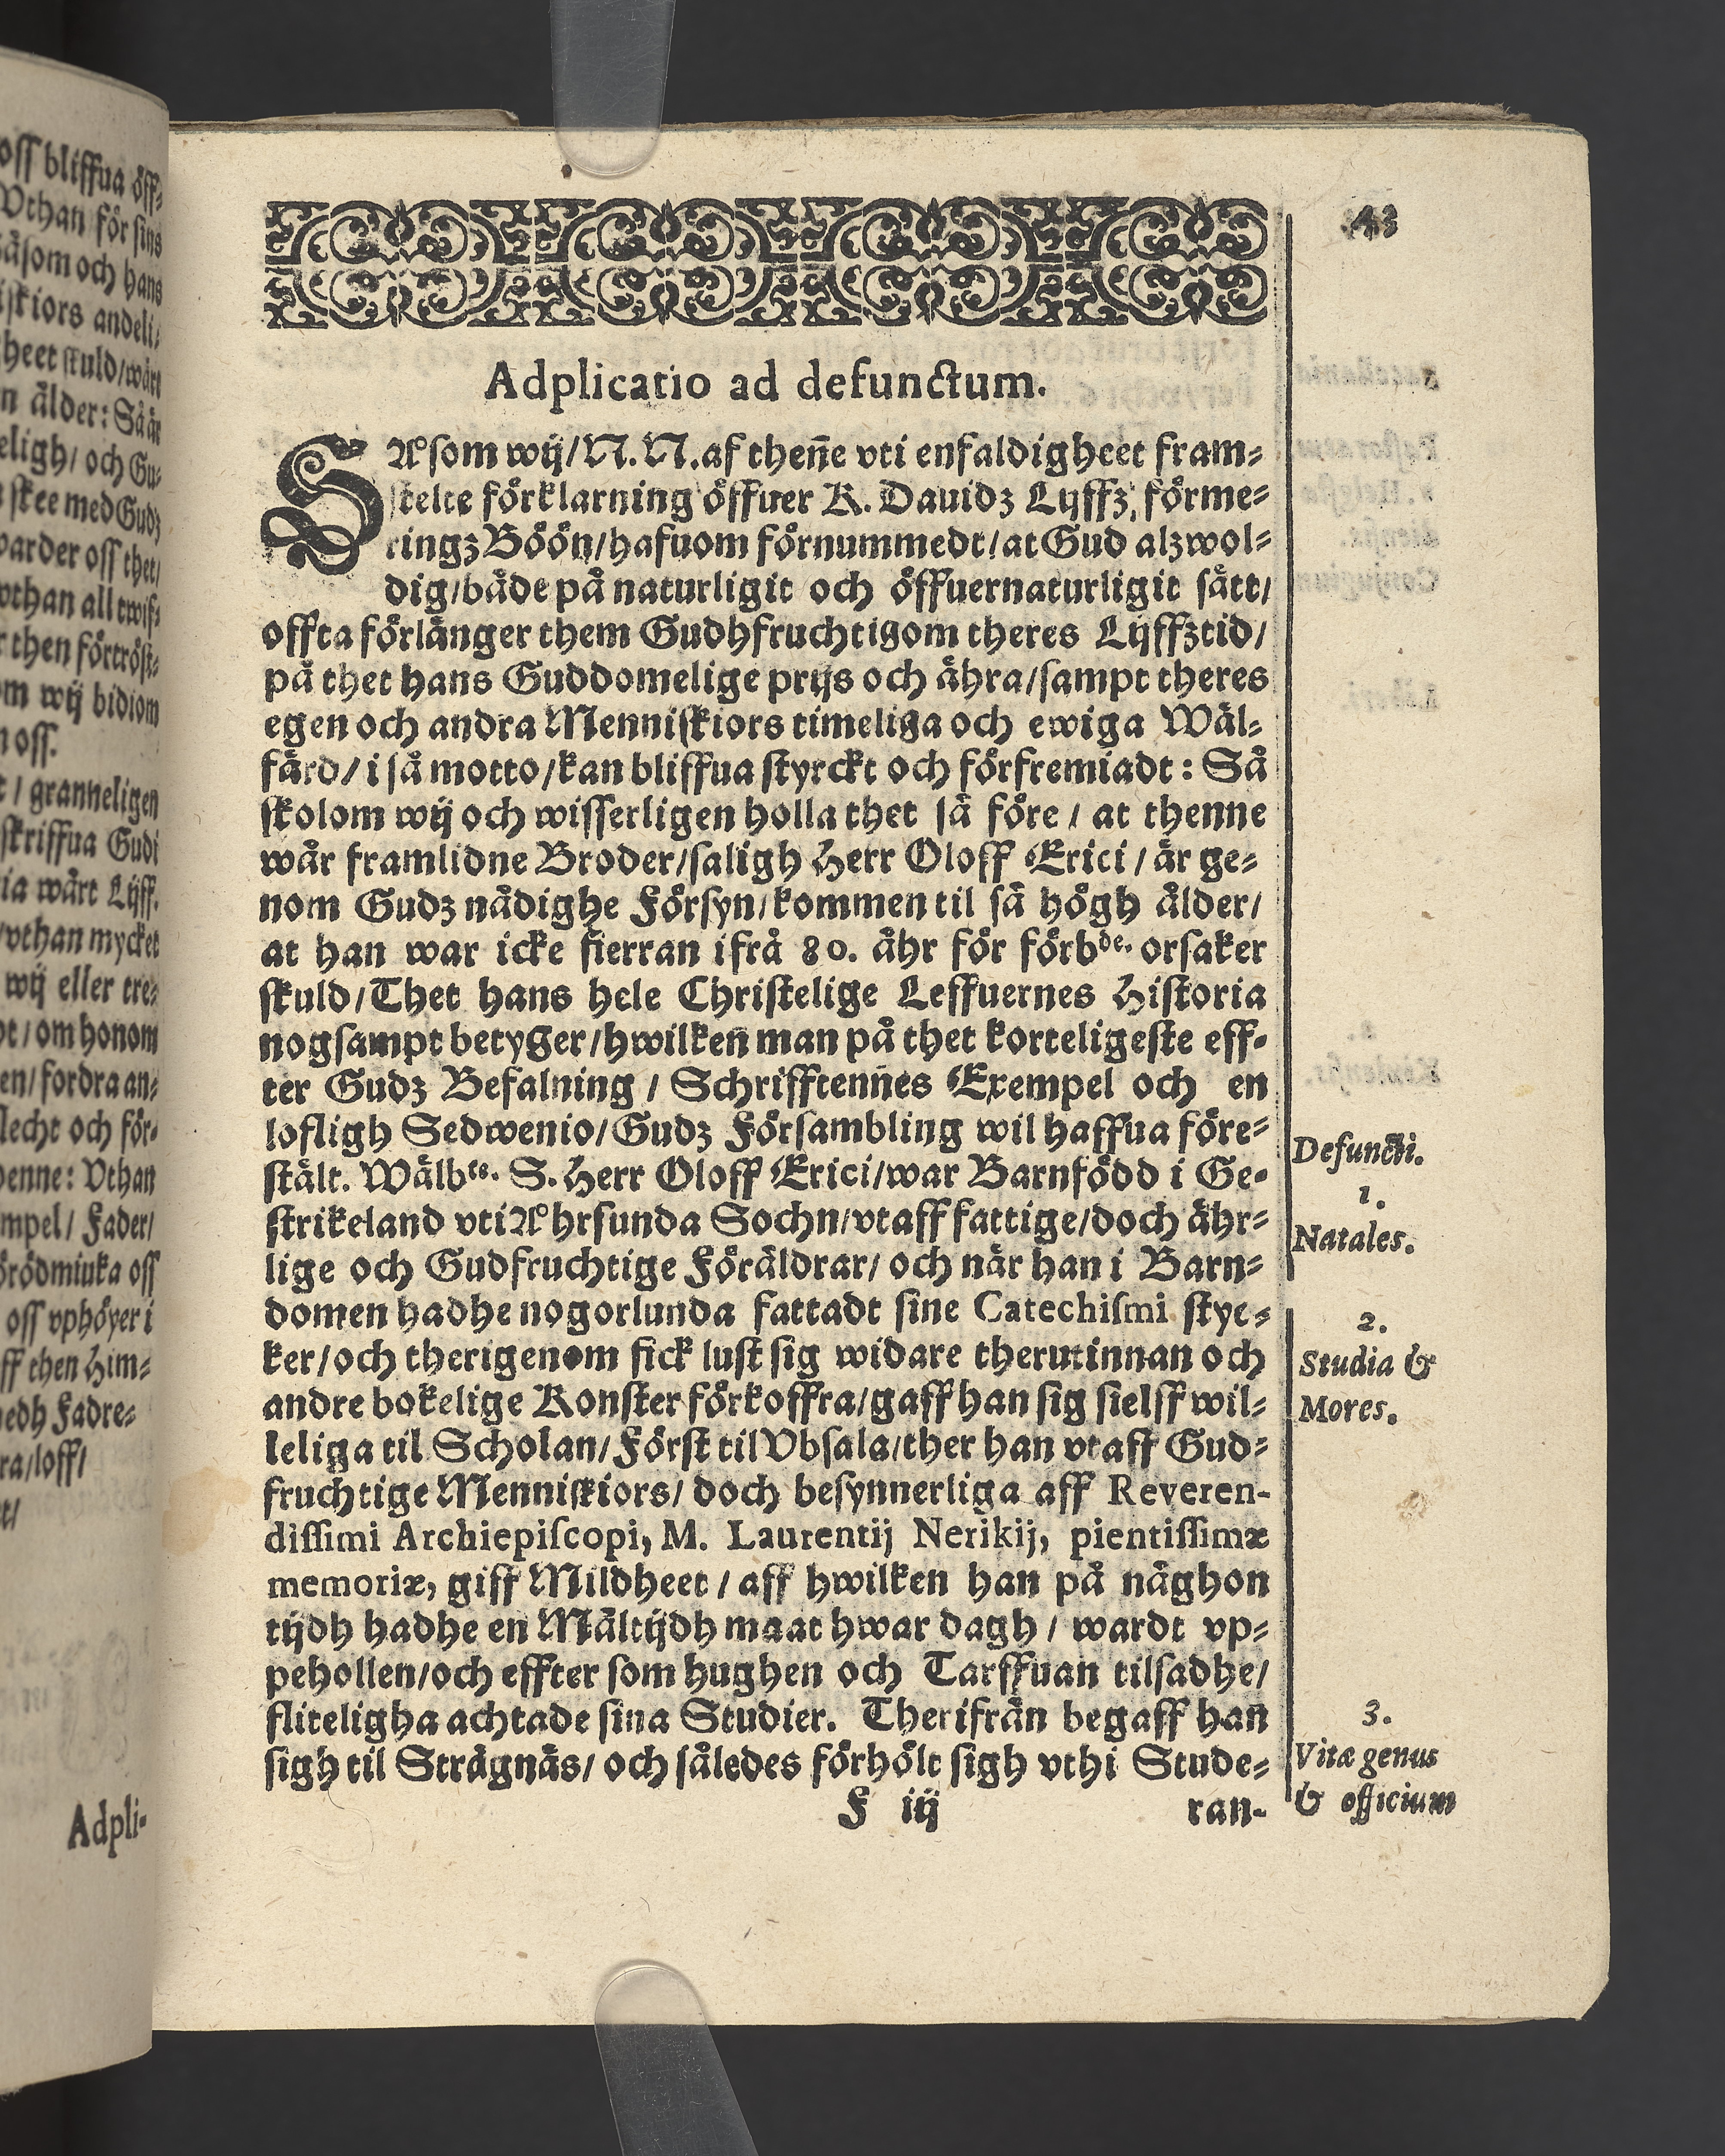 43
Adplicatio ad defunctum.
SÅsom wij/N.N.af theñe vti enfaldigheet fram-
stelte förklarning öffuer K. Dauidz Lijffz, förme-
ringz Böön/hafuom förnummedt/at Gud alzwol-
dig/både på naturligit och öffuernaturligit sätt/
offta förlänger them Gudhfruchtigom theres Lijffztid/
på thet hans Guddomelige prijs och ähra/sampt theres
egen och andra Menniskiors timeliga och ewiga Wäl-
färd/i så motto/kan bliffua styrckt och förfremiadt: Så
skolom wij och wisserligen holla thet så före/at thenne
wår framlidne Broder/saligh Herr Oloff Erici/är ge-
nom Gudz nådighe Försyn/kommen til så högh ålder/
at han war icke fierran ifrå 80. åhr för förbde. orsaker
skuld/Thet hans hele Christelige Leffuernes Historia
nogsampt betyger/hwilken man på thet korteligeste eff-
ter Gudz Befalning/Schrifftennes Exempel och en
lofligh Sedwenio/Gudz Försambling wil haffua före-
stält. Wälbte. S. Herr Oloff Erici/war Barnfödd i Ge-
strikeland vti Åhrsunda Sochn/vtaff fattige/doch ähr-
lige och Gudfruchtige Föräldrar/och när han i Barn-
domen hadhe nogorlunda fattadt sine Catechismi stye-
ker/och therigenom fick lust sig widare therutinnan och
andre bokelige Konster förkoffra/gaff han sig sielff wil-
leliga til Scholan/Först til Vbsala/ther han vtaff Gud-
fruchtige Menniskiors/doch besynnerliga aff Reveren-
dissimi Archiepiscopi, M. Laurentij Nerikij, pientissimæ
memoriæ, giff Mildheet/aff hwilken han på någhon
tijdh hadhe en Måltijdh maat hwar dagh/wardt vp-
pehollen/och effter som hughen och Tarffuan tilsadhe/
fliteligha achtade sina Studier. Therifrån begaff hañ
sigh til Strägnäs/och således förhölt sigh vthi Stude-
F iij ran-
Defuncti.
1.
Natales.
2.
Studia &
Mores.
3.
Vitæ genus
& officium
oss bliffua öff-
Vthan för sins
såsom och hans
iskiors andeli-
heet skuld/wårt
n ålder: Så är
eligh/och Gu-
skee med Gudz
warder oss thet/
vthan all twif-
then förtröst-
om wij bidiom
oss.
/granneligen
skriffua Gudi
ia wårt Lijff.
/vthan mycket
wij eller tre-
/om honom
en/fordra an-
lecht och för-
denne: Vthan
mpel/Fader/
örödmiuka oss
oss vphöyer i
ff then Him-
edh Fadre-
ra/loff/
Adpli-